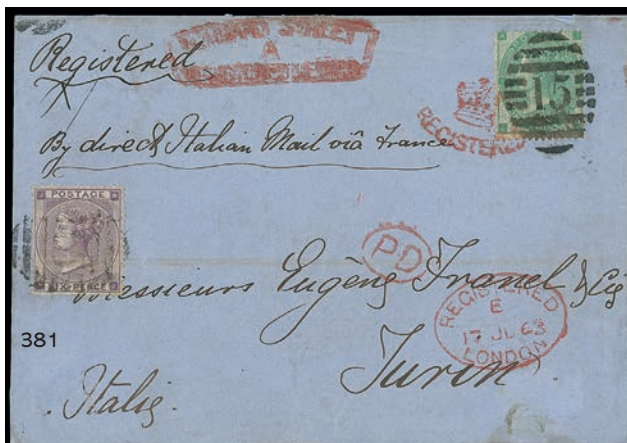 LOMBARD STREET
A
Registered
REGISTERED
15
By direct Italian Mail viâ France
POSTAGE
SIX PENCE
P.D
Messieurs Eugène Franel & Cie
REGISTERED
E
17 JL 63
LONDON
381
Turin
Italie.